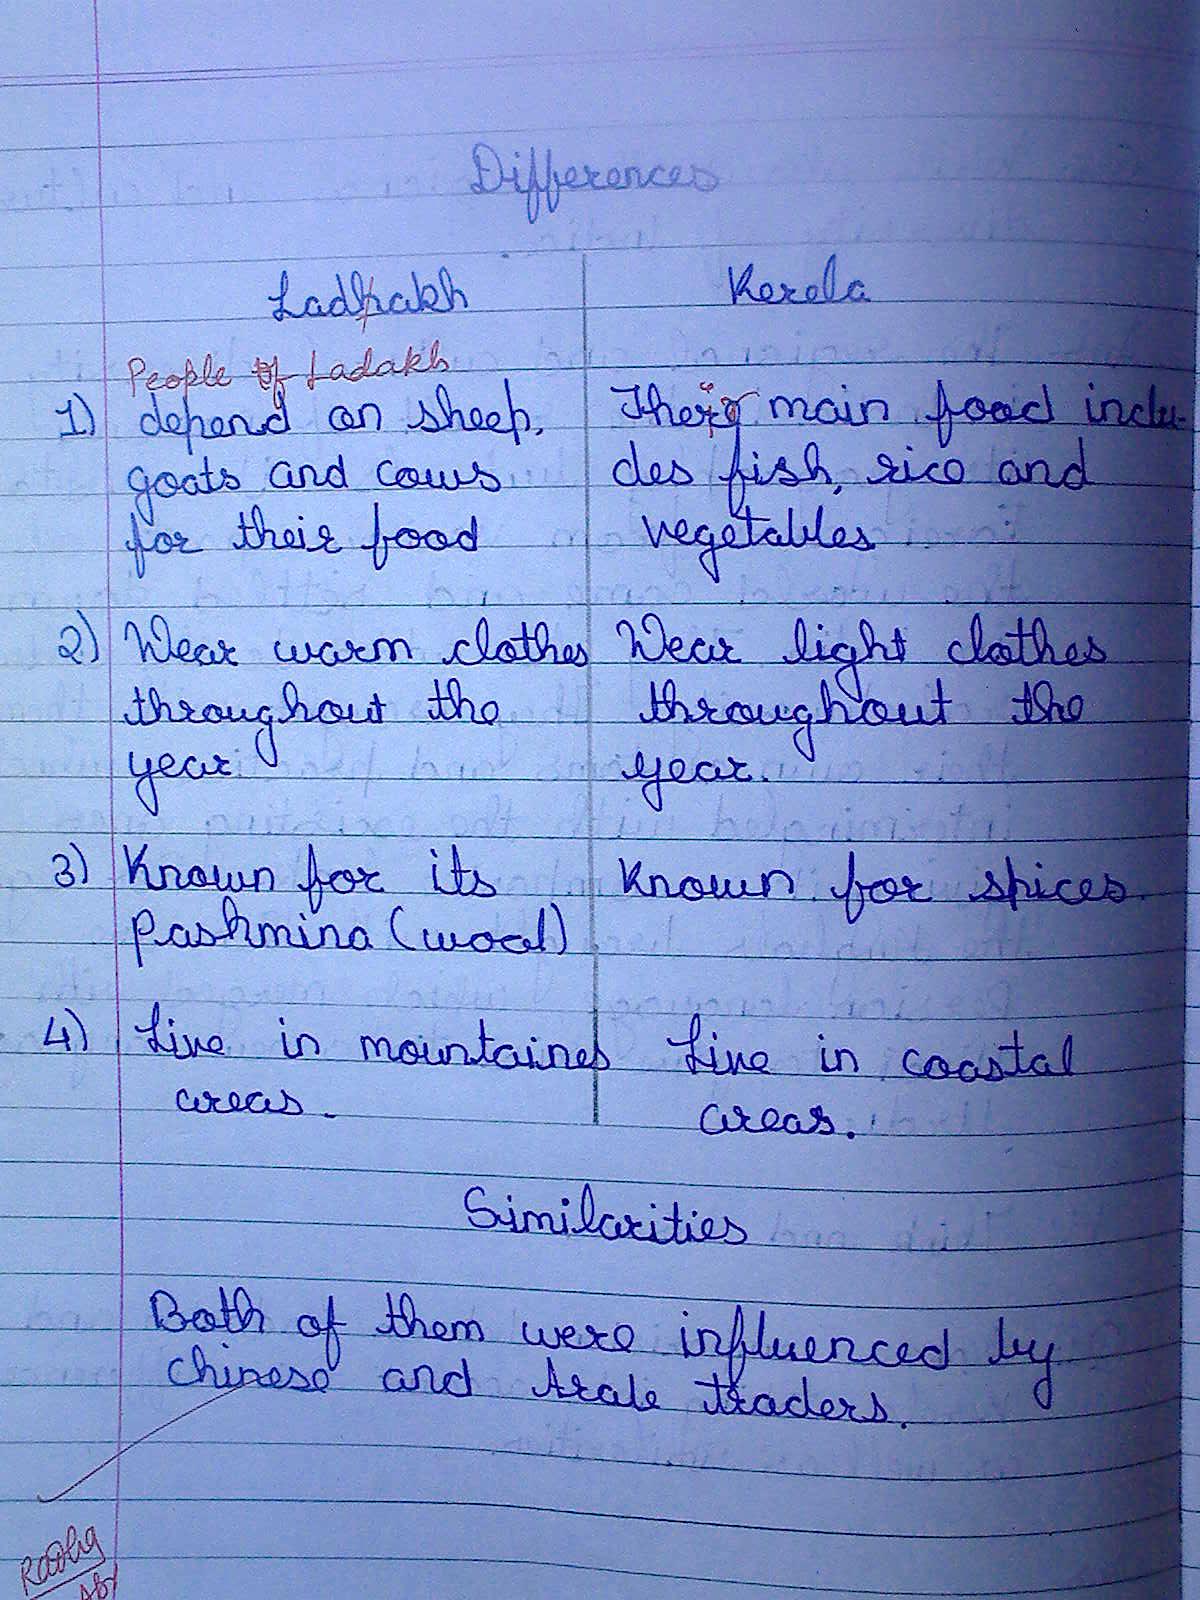 Differences
Ladhakh
Kerela
People of Ladakh
1) depend on sheep,
goats and cows
for their food
Their main food inclu-
des fish, rice and
vegetables
2) Wear warm clothes
throughout the
year.
Wear light clothes
throughout the
year.
3) Known for its
Pashmina (wool)
Known for spices.
4) Live in mountaines
areas.
Live in coastal
areas.
Similarities
Both of them were influenced by
Chinese and Arab traders.